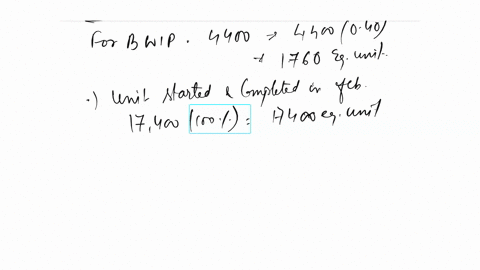 For BWIP. 4400 → 4400 (0.40)
→ 1760 Eq. unit.
·) Unit started & Completed in feb.
17,400 (100%) = 17400 eq. unit